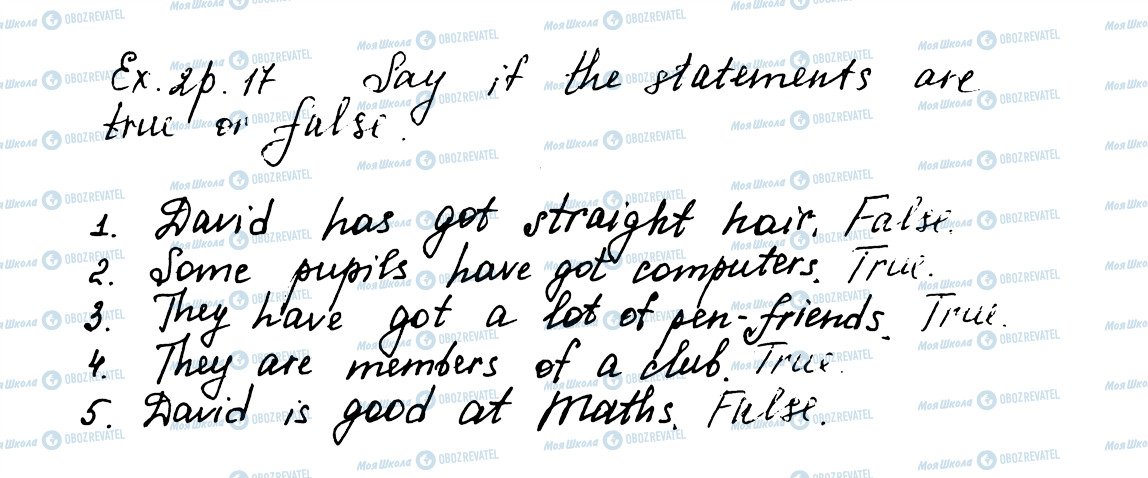 Ex. 2 p. 17 Say if the statements are
true or false.
1. David has got straight hair. False.
2. Some pupils have got computers. True.
3. They have got a lot of pen-friends. True.
4. They are members of a club. True.
5. David is good at Maths. False.